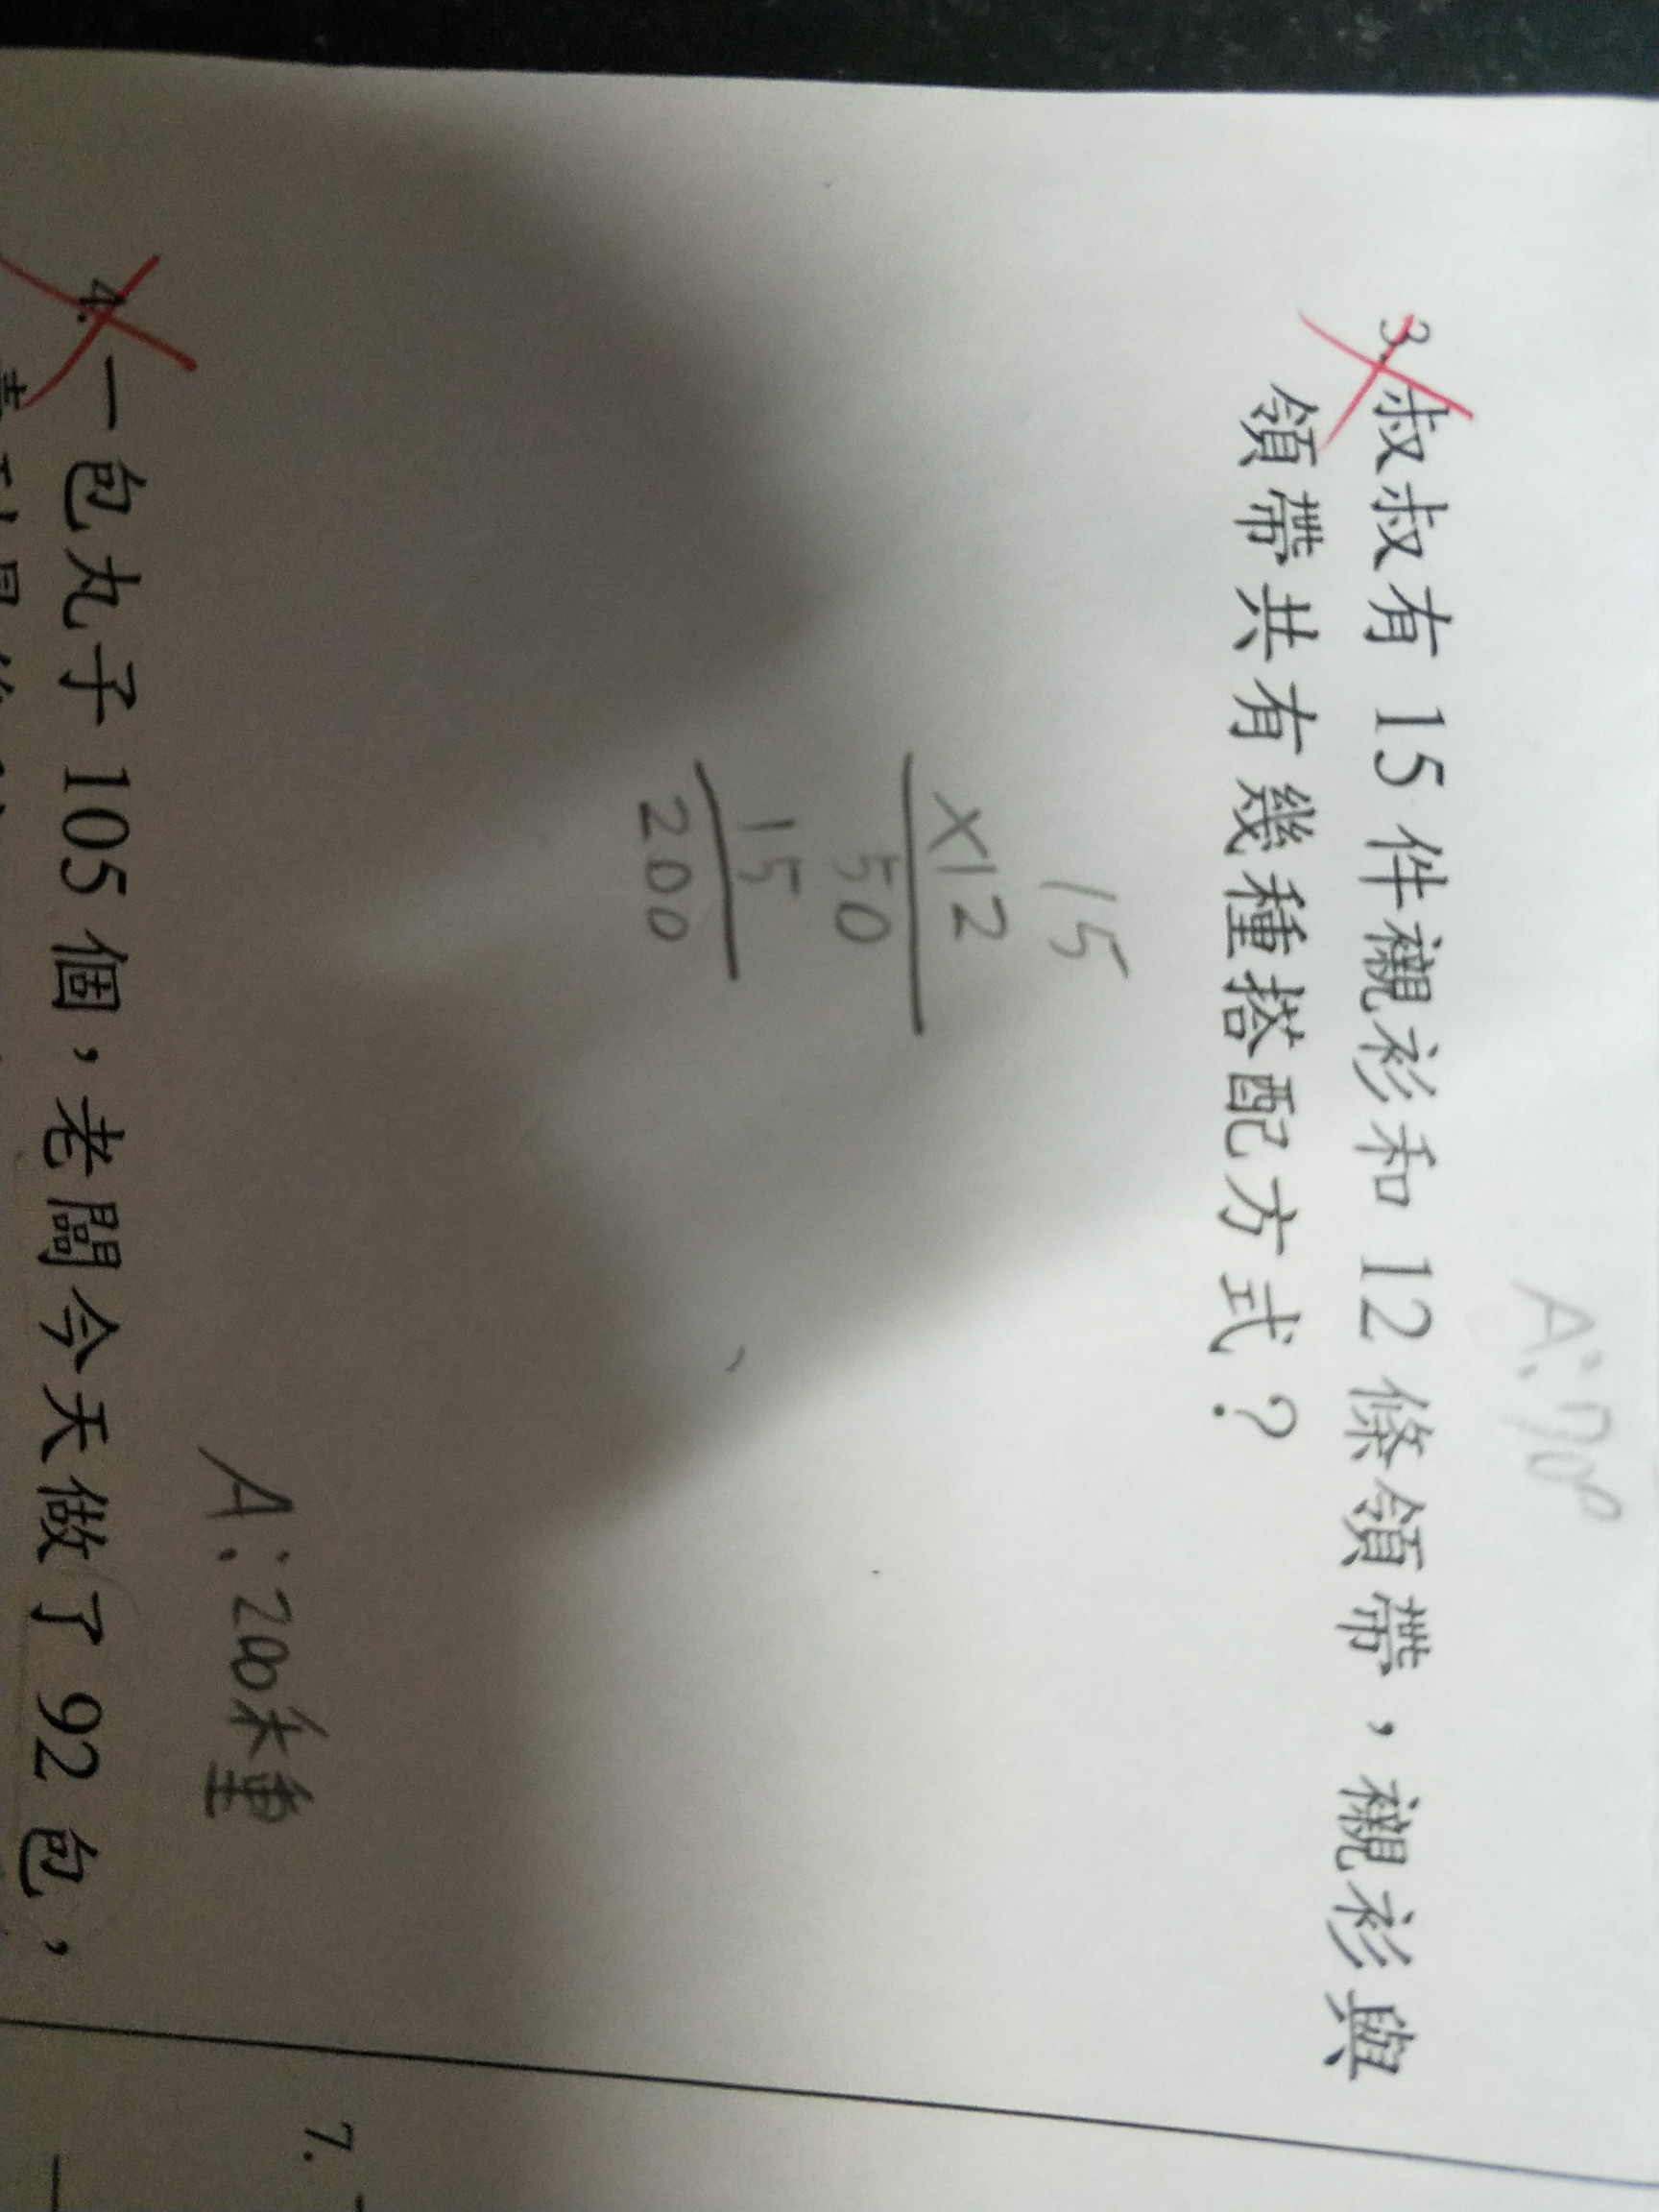 A:70°
3. 叔叔有 15 件襯衫和 12 條領帶，襯衫與
領帶共有幾種搭配方式？
15
×12
50
15
200
A:200種
4. 一包丸子 105 個，老闆今天做了 92 包，
7.